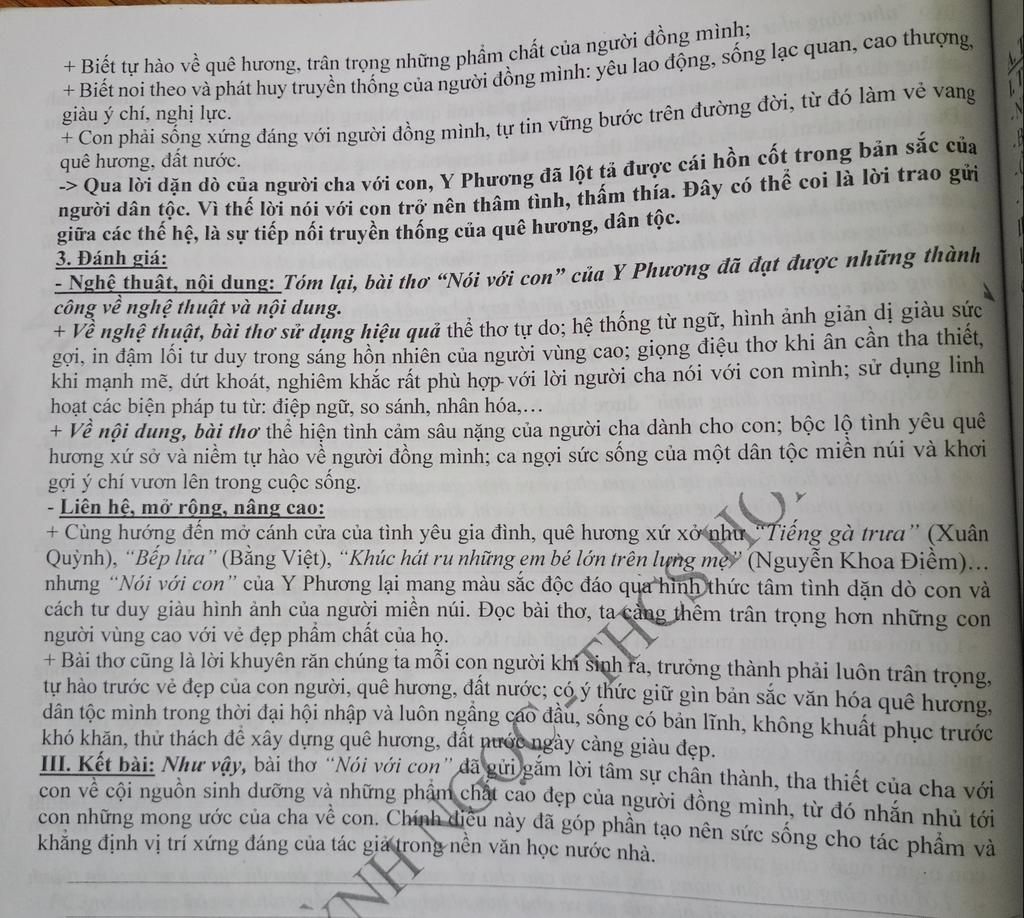 + Biết tự hào về quê hương, trân trọng những phẩm chất của người đồng mình;
+ Biết noi theo và phát huy truyền thống của người đồng mình: yêu lao động, sống lạc quan, cao thượng,
giàu ý chí, nghị lực.
+ Con phải sống xứng đáng với người đồng mình, tự tin vững bước trên đường đời, từ đó làm vẻ vang
quê hương, đất nước.
-> Qua lời dặn dò của người cha với con, Y Phương đã lột tả được cái hồn cốt trong bản sắc của
người dân tộc. Vì thế lời nói với con trở nên thâm tình, thấm thía. Đây có thể coi là lời trao gửi
giữa các thế hệ, là sự tiếp nối truyền thống của quê hương, dân tộc.
3. Đánh giá:
- Nghệ thuật, nội dung: Tóm lại, bài thơ “Nói với con” của Y Phương đã đạt được những thành
công về nghệ thuật và nội dung.
+ Về nghệ thuật, bài thơ sử dụng hiệu quả thể thơ tự do; hệ thống từ ngữ, hình ảnh giản dị giàu sức
gợi, in đậm lối tư duy trong sáng hồn nhiên của người vùng cao; giọng điệu thơ khi ân cần tha thiết,
khi mạnh mẽ, dứt khoát, nghiêm khắc rất phù hợp với lời người cha nói với con mình; sử dụng linh
hoạt các biện pháp tu từ: điệp ngữ, so sánh, nhân hóa,…
+ Về nội dung, bài thơ thể hiện tình cảm sâu nặng của người cha dành cho con; bộc lộ tình yêu quê
hương xứ sở và niềm tự hào về người đồng mình; ca ngợi sức sống của một dân tộc miền núi và khơi
gợi ý chí vươn lên trong cuộc sống.
- Liên hệ, mở rộng, nâng cao:
+ Cùng hướng đến mở cánh cửa của tình yêu gia đình, quê hương xứ xở như “Tiếng gà trưa” (Xuân
Quỳnh), “Bếp lửa” (Bằng Việt), “Khúc hát ru những em bé lớn trên lưng mẹ” (Nguyễn Khoa Điềm)…
nhưng “Nói với con” của Y Phương lại mang màu sắc độc đáo qua hình thức tâm tình dặn dò con và
cách tư duy giàu hình ảnh của người miền núi. Đọc bài thơ, ta càng thêm trân trọng hơn những con
người vùng cao với vẻ đẹp phẩm chất của họ.
+ Bài thơ cũng là lời khuyên răn chúng ta mỗi con người khi sinh ra, trưởng thành phải luôn trân trọng,
tự hào trước vẻ đẹp của con người, quê hương, đất nước; có ý thức giữ gìn bản sắc văn hóa quê hương,
dân tộc mình trong thời đại hội nhập và luôn ngẩng cao đầu, sống có bản lĩnh, không khuất phục trước
khó khăn, thử thách để xây dựng quê hương, đất nước ngày càng giàu đẹp.
III. Kết bài: Như vậy, bài thơ “Nói với con” đã gửi gắm lời tâm sự chân thành, tha thiết của cha với
con về cội nguồn sinh dưỡng và những phẩm chất cao đẹp của người đồng mình, từ đó nhắn nhủ tới
con những mong ước của cha về con. Chính điều này đã góp phần tạo nên sức sống cho tác phẩm và
khẳng định vị trí xứng đáng của tác giả trong nền văn học nước nhà.
NGỌC - THCS